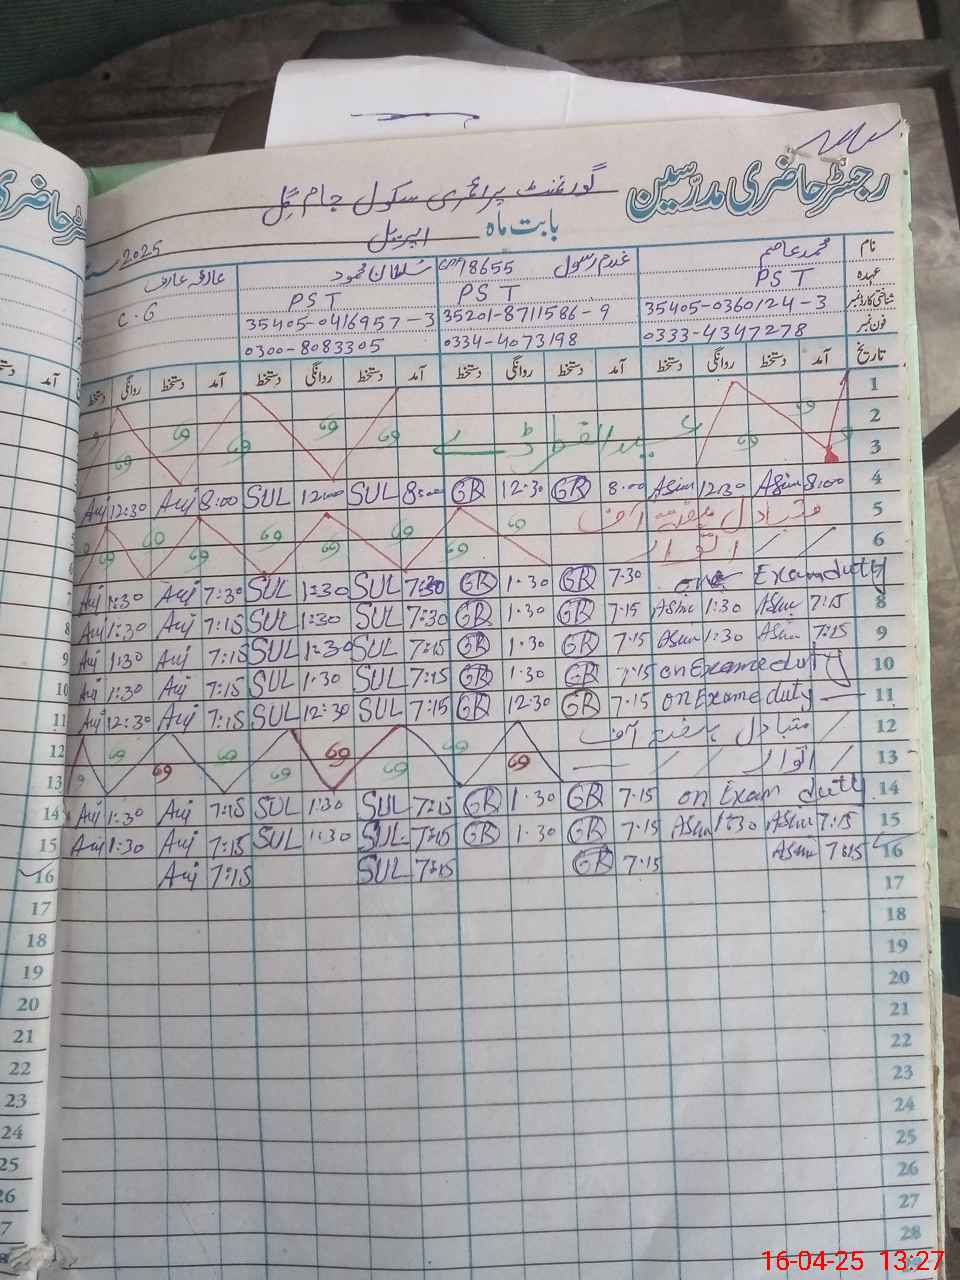 رجسٹر حاضری مدرسین
گورنمنٹ پرائمری سکول جام
بابت ماہ اپریل 2025
نام محمد عاصم غلام رسول 78655 سلطان محمود عارف
عہدہ PST PST PST C.G
شناختی کارڈ نمبر 35405-0360124-3 35201-8711586-9 35405-0416957-3
فون نمبر 0333-4347278 0334-4073198 0300-8083305
تاریخ آمد دستخط روانگی دستخط آمد دستخط روانگی دستخط آمد دستخط روانگی دستخط آمد دستخط روانگی دستخط
1
2 عید الفطر
3
4 8:00 Asim 12:30 Asim 8:00 GR 12:30 GR 8:00 SUL 12:00 SUL 8:00 Arij 12:30 Arij
5
6 اتوار
7 on Exam duty 7:30 GR 1:30 GR 7:30 SUL 1:30 SUL 7:30 Arij 1:30 Arij
8 7:15 Asim 1:30 Asim 7:15 GR 1:30 GR 7:30 SUL 1:30 SUL 7:15 Arij 1:30 Arij
9 7:15 Asim 1:30 Asim 7:15 GR 1:30 GR 7:15 SUL 1:30 SUL 7:15 Arij 1:30 Arij
10 on Exame duty 7:15 GR 1:30 GR 7:15 SUL 1:30 SUL 7:15 Arij 1:30 Arij
11 on Exame duty 7:15 GR 12:30 GR 7:15 SUL 12:30 SUL 7:15 Arij 12:30 Arij
12
13 اتوار
14 on Exam duty 7:15 GR 1:30 GR 7:15 SUL 1:30 SUL 7:15 Arij 1:30 Arij
15 7:15 Asim 1:30 Asim 7:15 GR 1:30 GR 7:15 SUL 1:30 SUL 7:15 Arij 1:30 Arij
16 7:15 Asim 7:15 GR 7:15 SUL 7:15 Arij
17
18
19
20
21
22
23
24
25
26
27
28
16-04-25 13:27